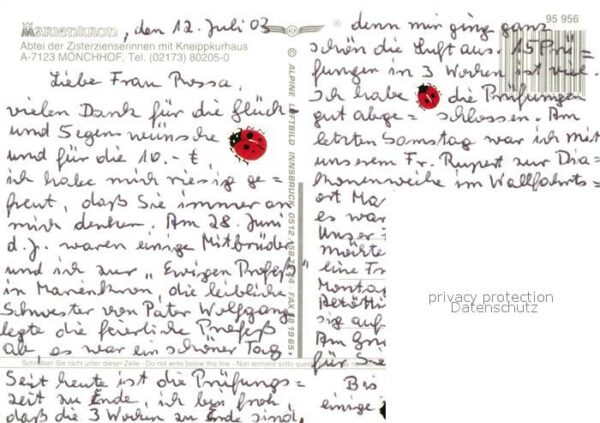 Marienkron, den 12. Juli 03
Abtei der Zisterzienserinnen mit Kneippkurhaus
A-7123 MÖNCHHOF, Tel. (02173) 80205-0
Liebe Frau Prossa,
vielen Dank für die Glück
und Segenswünsche
und für die 10.- €,
ich habe mich riesig ge=
freut, daß Sie immer an
mich denken. Am 28. Juni
d. J. waren einige Mitbrüder
und ich zur „Ewigen Profeß"
in Marienkron, die leibliche
Schwester von Pater Wolfgang
legte die feierliche Profeß
ab, es war ein schöner Tag
Schreiben Sie nicht unter dieser Zeile - Do not write below this line - Non scrivere sotto
Seit heute ist die Prüfungs=
zeit zu Ende, ich bin froh
daß die 3 Wochen zu Ende sind,
© ALPINE LUFTBILD INNSBRUCK
95 956
denn mir ging ganz
schön die Luft aus. 15 Prü=
fungen in 3 Wochen ist viel.
Ich habe die Prüfungen
gut abge= schlossen. Am
letzten Samstag war ich mit
unserem Fr. Rupert zur Dia=
konenweihe im Wallfahrts=
ort Mar
es war
Unser
möchte
eine Fr
Montag
sig auf
Am
für Sie
Bis
einige
privacy protection
Datenschutz